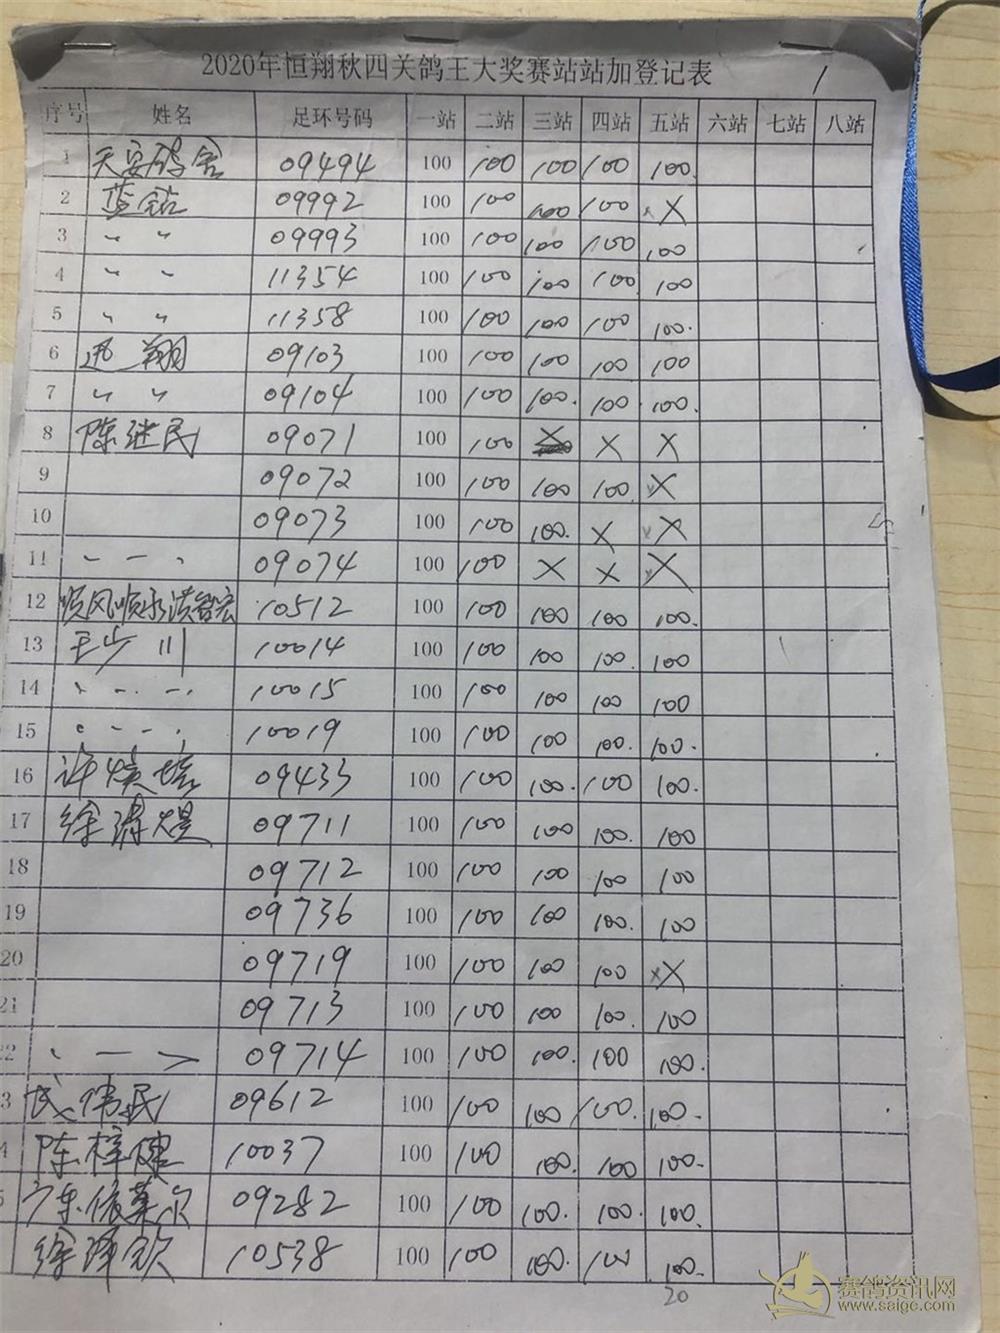 2020年恒翔秋四关鸽王大奖赛站站加登记表
1
序号 姓名 足环号码 一站 二站 三站 四站 五站 六站 七站 八站
1 天安鸽舍 09494 100 100 100 100 100.
2 蓝钻 09992 100 100 100 100 x X
3 〃 〃 09993 100 100 100 100 100
4 〃 〃 11354 100 100 100 100 100
5 〃 〃 11358 100 100 100 100 100.
6 迅翔 09103 100 100 100 100 100
7 〃 〃 09104 100 100 100. 100 100.
8 陈继民 09071 100 100 X X X
9 09072 100 100 100 100. X
10 09073 100 100 100. X X
11 09074 100 100 X X X
12 顺风顺水 10512 100 100 100 100 100.
13 王少川 10014 100 100 100 100. 100
14 10015 100 100 100 100 100
15 10019 100 100 100 100. 100.
16 许焕培 09433 100 100 100. 100 100.
17 徐 09711 100 100 100 100. 100
18 09712 100 100 100 100 100
19 09736 100 100 100 100. 100
20 09719 100 100 100 100 x X
21 09713 100 100 100 100. 100
22 09714 100 100 100. 100 100.
3 伟民 09612 100 100 100 100. 100.
4 陈梓健 10037 100 100 100. 100 100.
5 广东依莱尔 09282 100 100 100. 100. 100.
徐泽钦 10538 100 100 100. 100 100.
20
赛鸽资讯网
www.saige.com